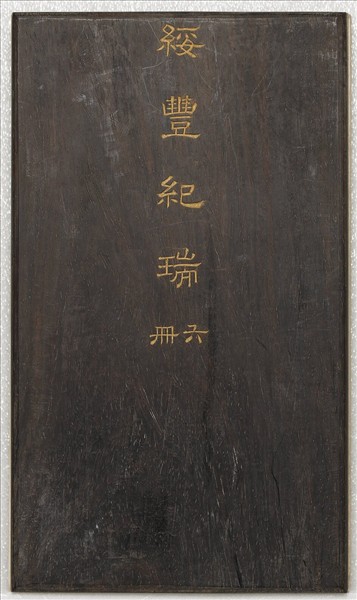 綏豐紀瑞
六冊